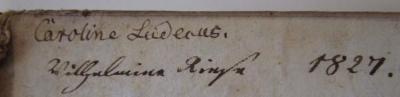 Caroline Ludecus.
Wilhelmine Riese 1827.